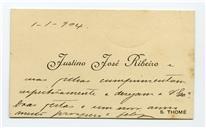 1-1-904
Justino José Ribeiro e
suas filhas cumprimentam
respeitosamente e desejam a V. Exª
Boas festas e um novo anno
muito prospero e feliz
S. THOMÉ